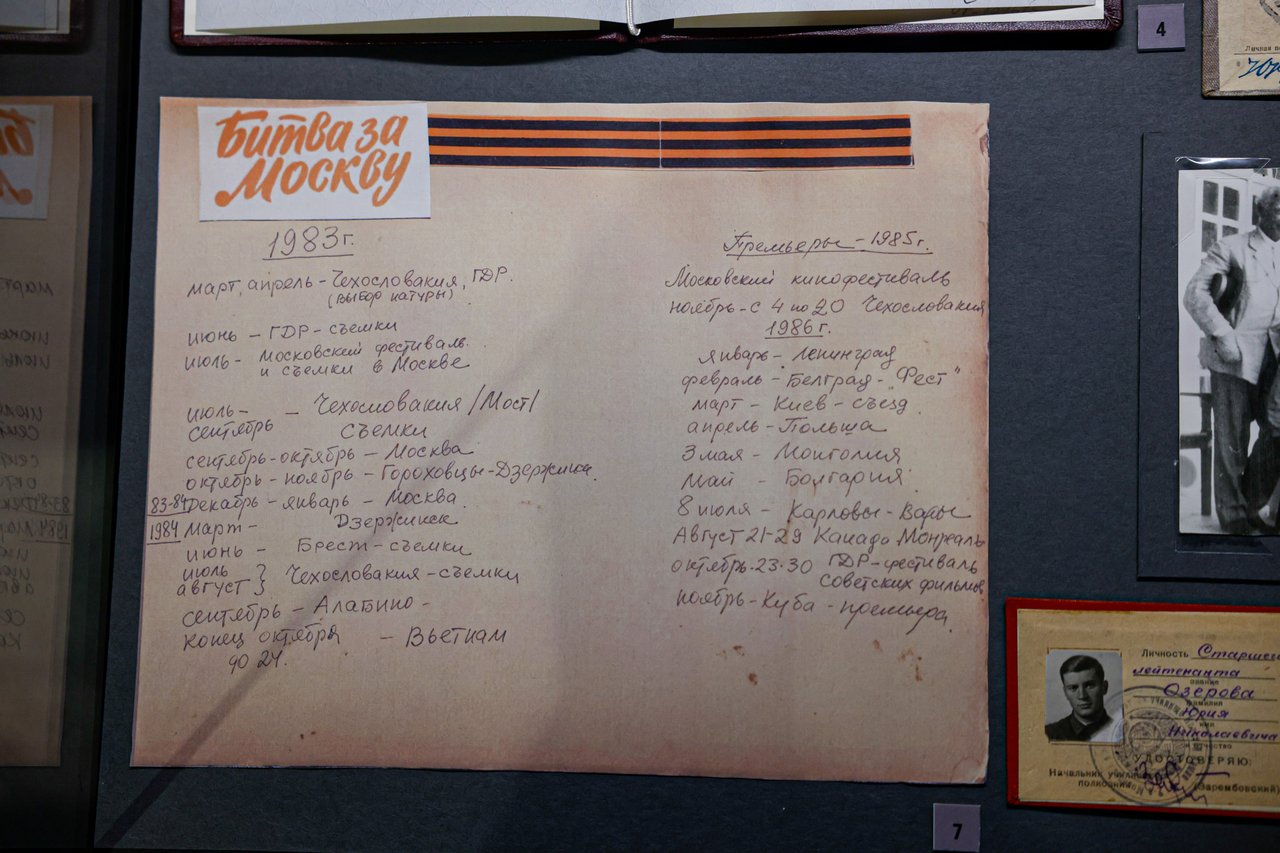 4
Битва за
Москву
1983 г.
март, апрель – Чехословакия, ГДР.
(выбор натуры)
июнь – ГДР – съемки
июль – Московский фестиваль
и съемки в Москве
июль – – Чехословакия /Мост/
сентябрь съемки
сентябрь-октябрь – Москва
октябрь-ноябрь – Гороховцы-Дзержинск
83-84 Декабрь – январь – Москва
1984 Март – Дзержинск
июнь – Брест – съемки
июль } Чехословакия – съемки
август }
сентябрь – Алабино –
конец октября – Вьетнам
до 24.
Премьеры – 1985 г.
Московский кинофестиваль
ноябрь – с 4 по 20 Чехословакия
1986 г.
январь – Ленинград
февраль – Белград – „Фест"
март – Киев – съезд
апрель – Польша
3 мая – Монголия
май – Болгария
8 июля – Карловы-Вары
Август 21-29 Канада Монреаль
октябрь 23-30 ГДР – фестиваль
Советских фильмов
ноябрь – Куба – премьера
Личность Старшего
лейтенанта
звание
Озерова
фамилия
Юрия
имя
Николаевича
и отчество
УДОСТОВЕРЯЮ:
Начальник училища
полковник (Зарембовский)
7